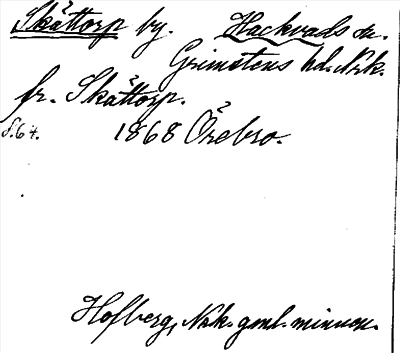 Skättorp by. Hackvads sn.
Grimstens hd. Nrk.
fr. Skättorp.
s. 64. 1868 Örebro.
Hofberg, Nrk. gml. minnen.